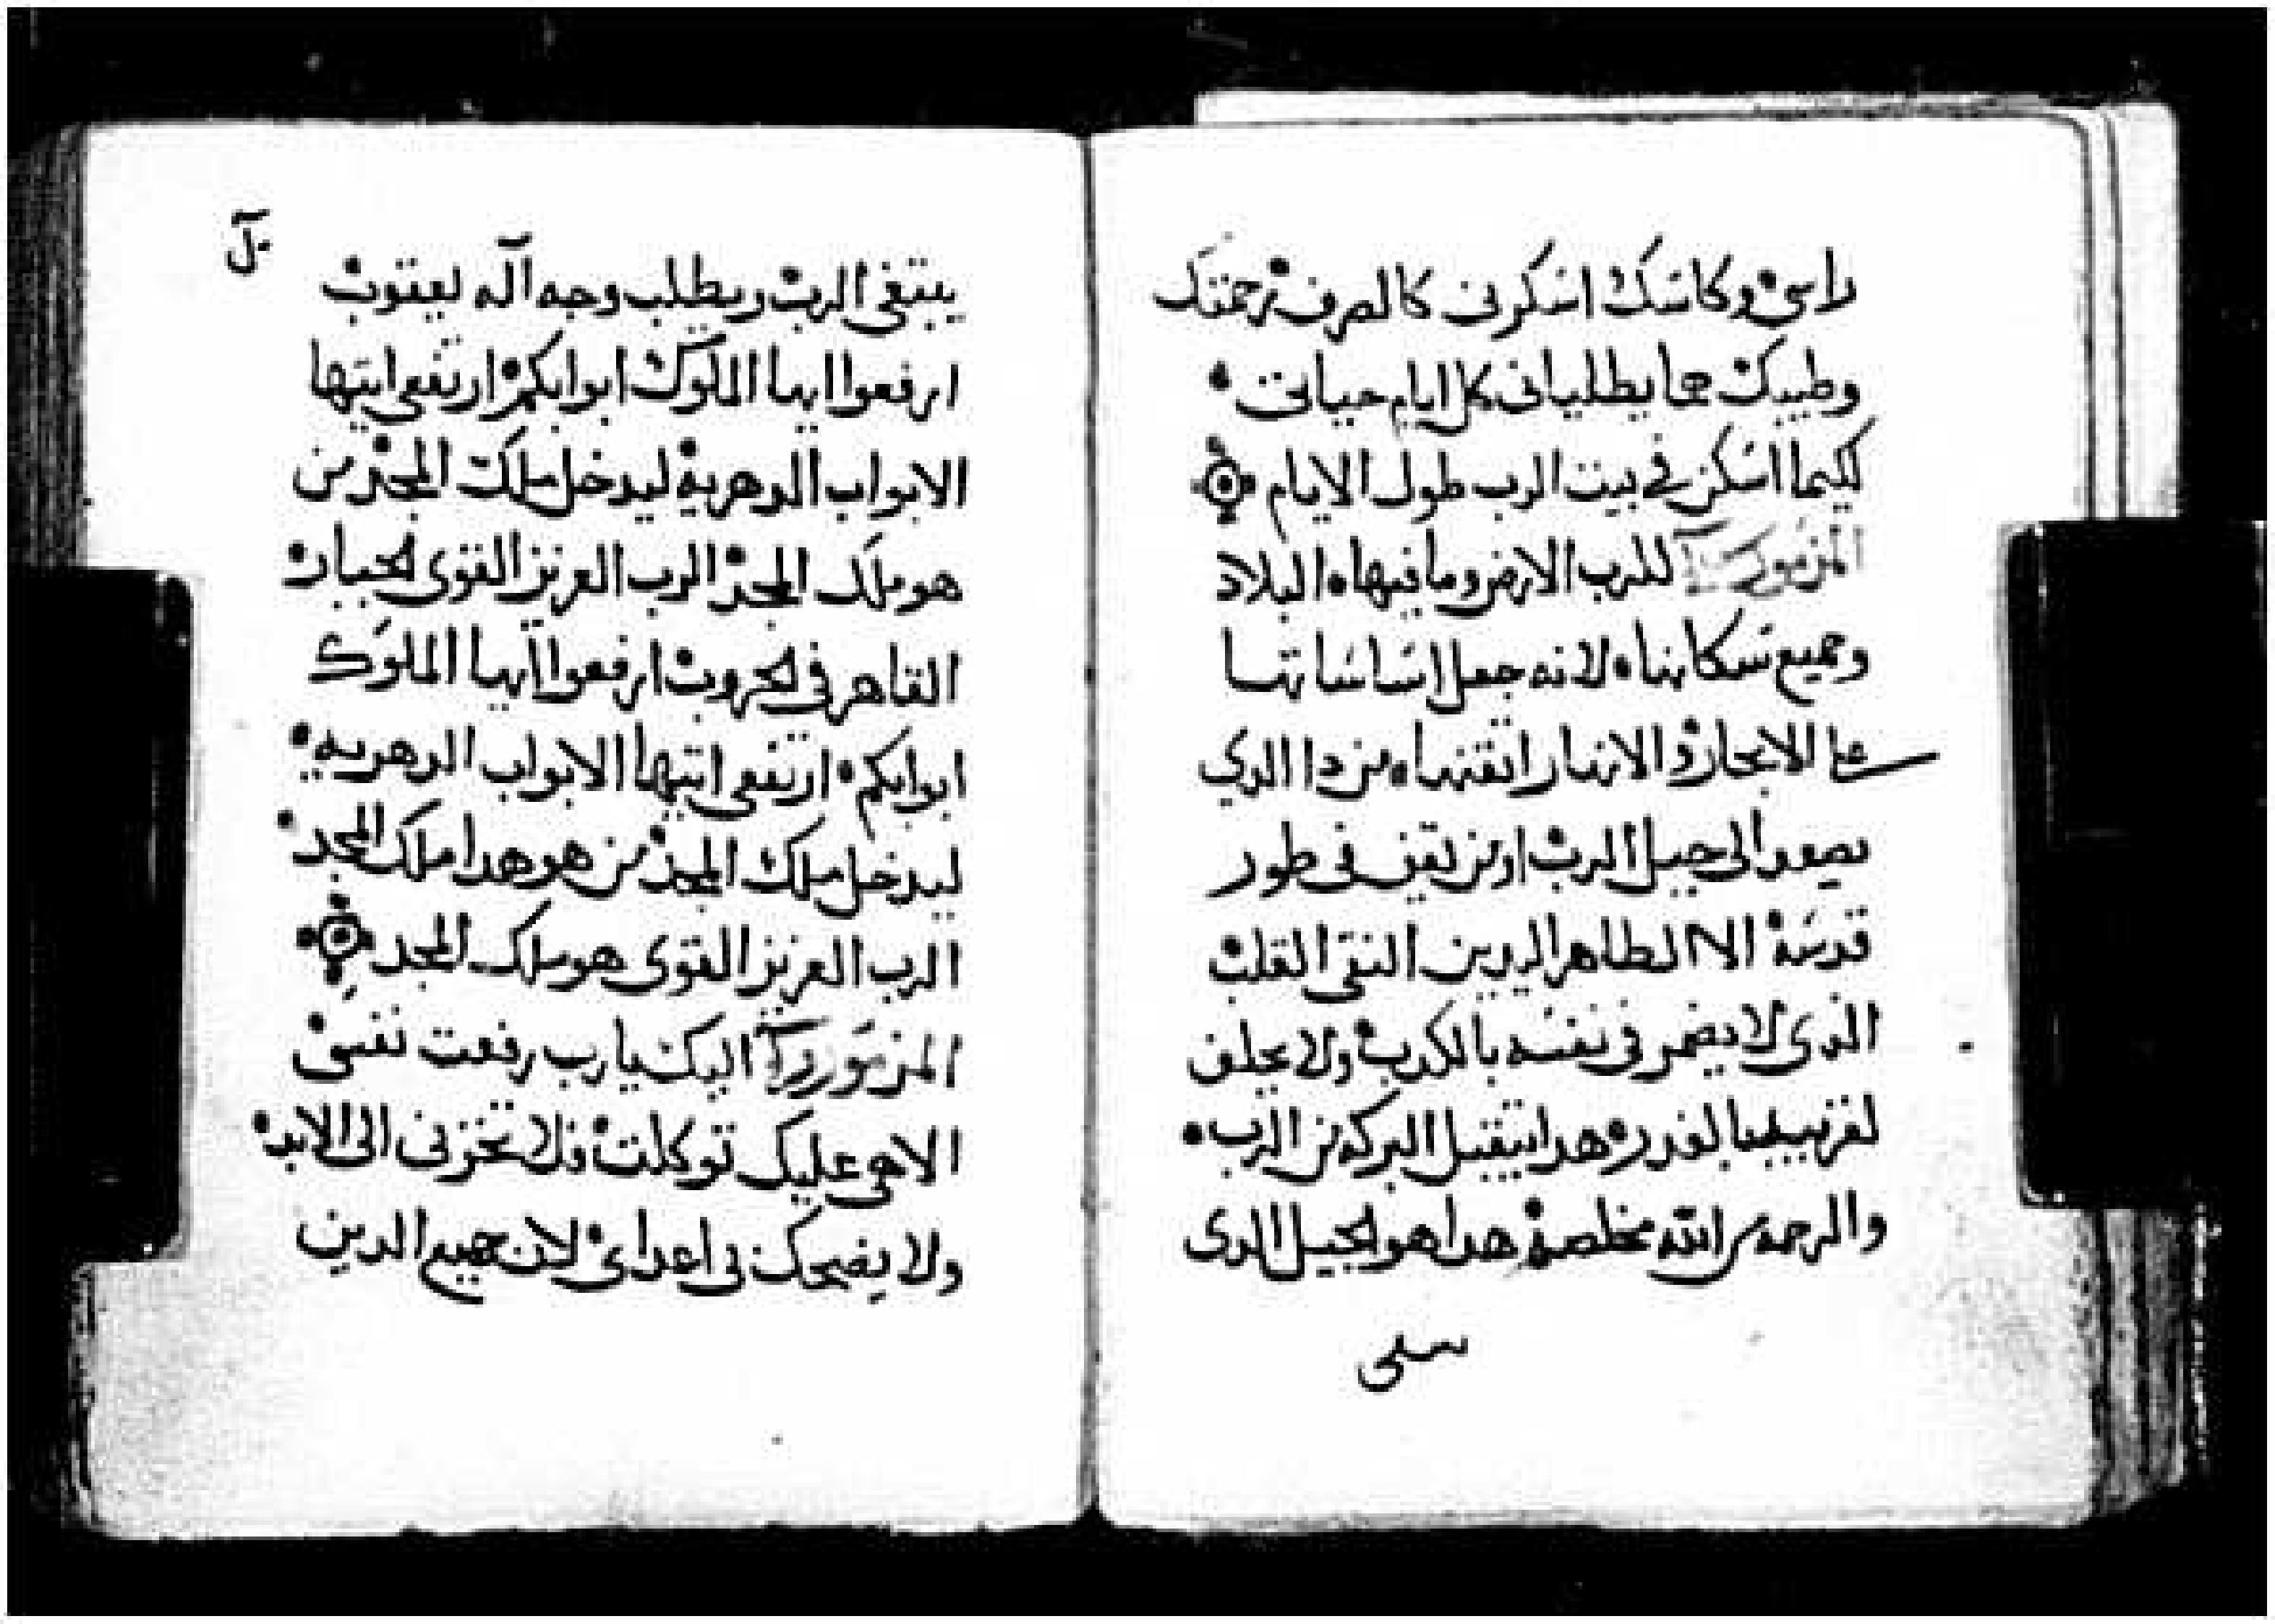 راسى وكاسك اسكرنى كالصرف رحمتك
وطيبك هما يطلبانى كل ايام حياتى
لكيما اسكن فى بيت الرب طول الايام
المزمور للرب الارض وما فيها البلاد
وجميع سكانها لانه جعل اساساتها
على الابحار والانهار اتقنها من دا الدي
يصعد الى جبل الرب او من يقف فى طور
قدسه الا الطاهر اليدين النقى القلب
الدى لا يضمر فى نفسه بالكدب ولا يحلف
لقريبه بالغدر هدا يتقبل البركه من الرب
والرحمه من الله مخلصه هدا هو الجيل الدى
يبتغى
يبتغى الرب ويطلب وجه اله يعقوب
ارفعوا ايها الملوك ابوابكم ارتفعى ايتها
الابواب الدهريه ليدخل ملك المجد من
هو ملك المجد الرب العزيز القوى الجبار
القاهر فى الحروب ارفعوا ايها الملوك
ابوابكم ارتفعى ايتها الابواب الدهريه
ليدخل ملك المجد من هو هدا ملك المجد
الرب العزيز القوى هو ملك المجد
المزمور اليك يارب رفعت نفسى
الاهى عليك توكلت فلا تخزنى الى الابد
ولا يضحك بى اعداى لان جميع الدين